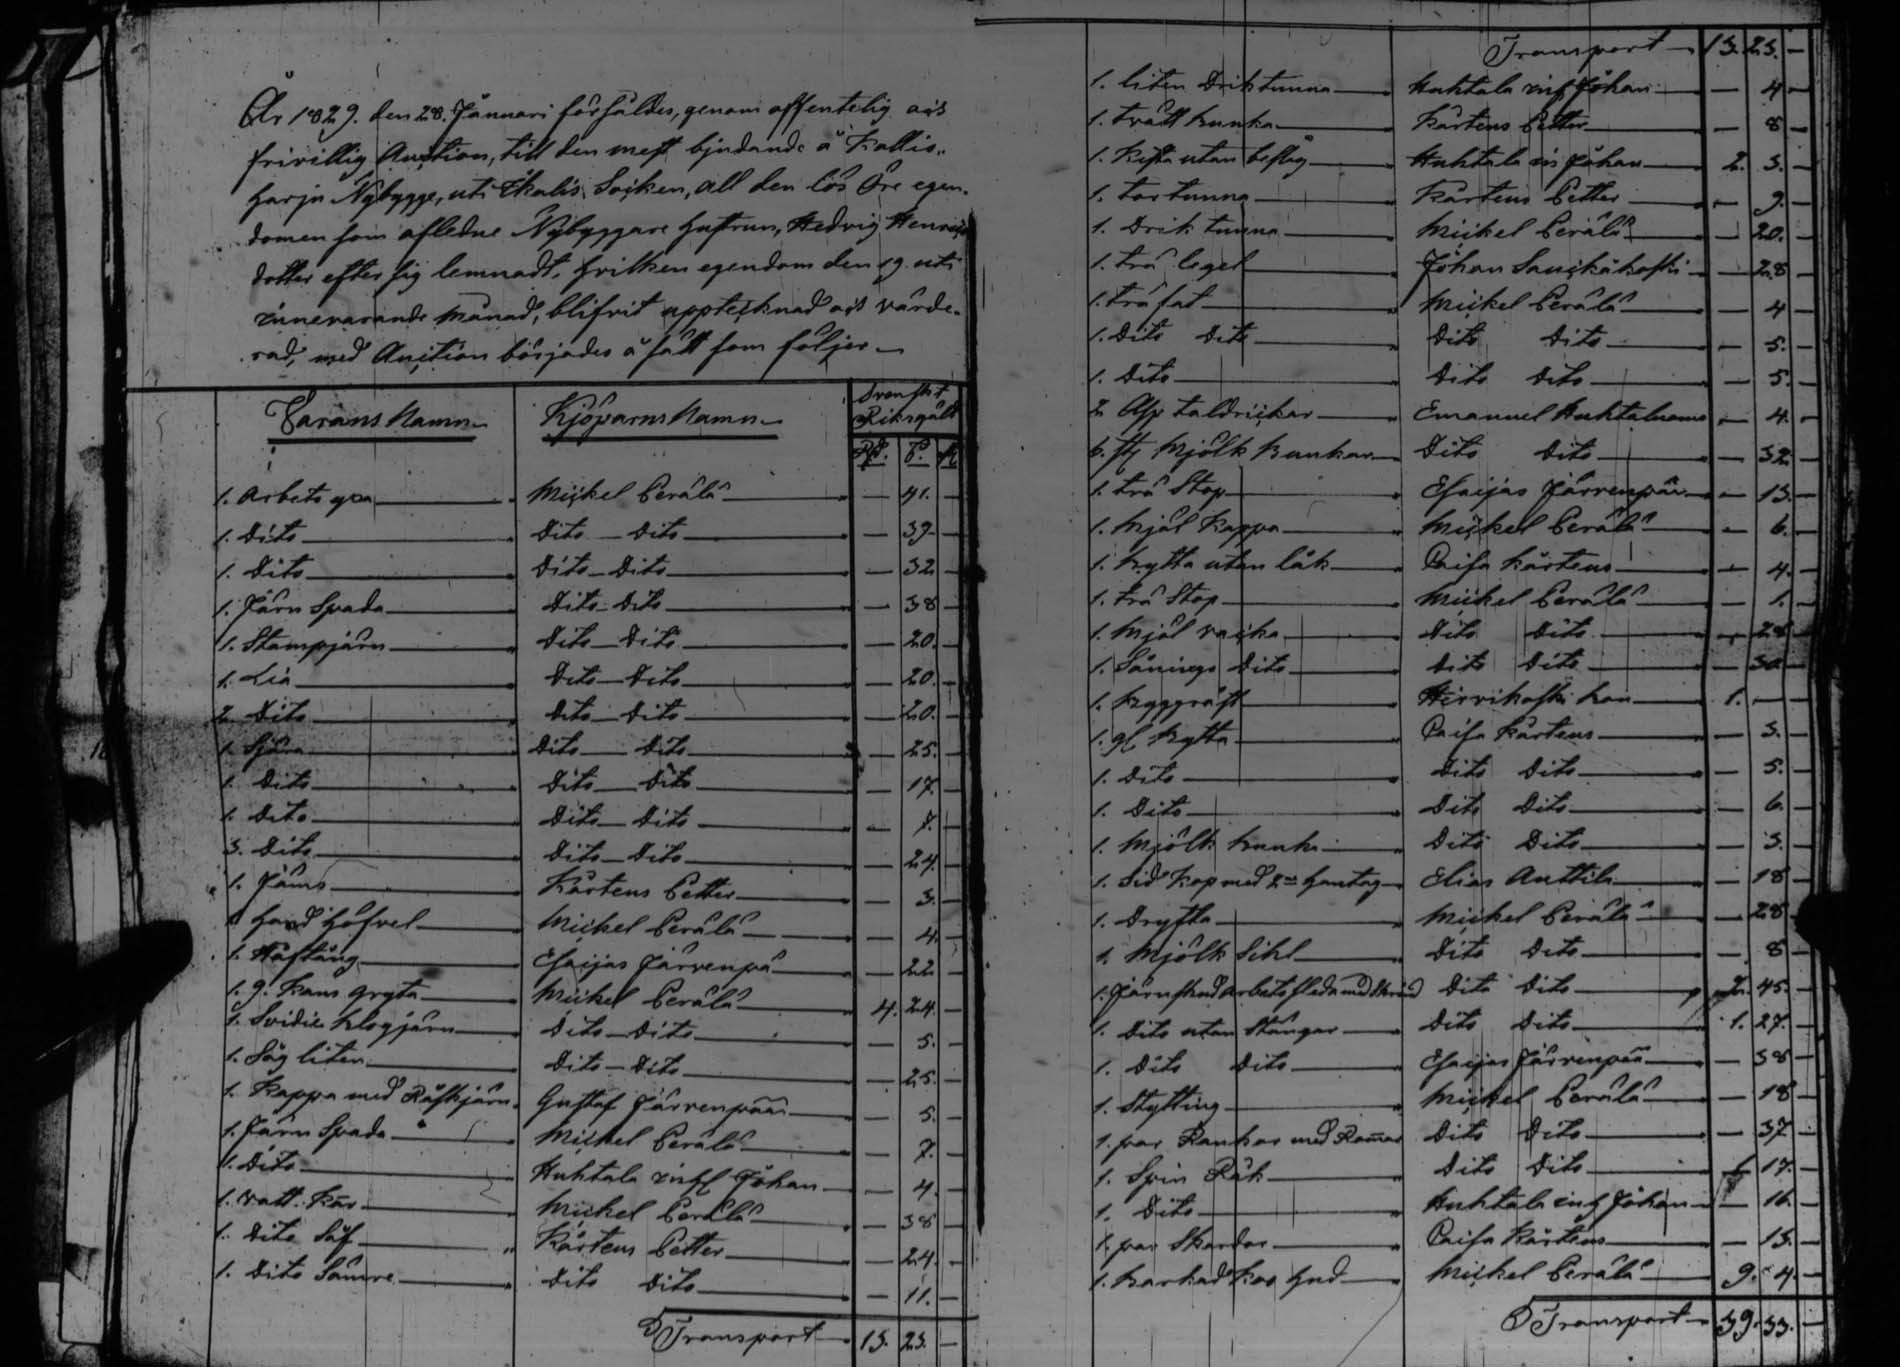 År 1829. den 28. Januari försåldes, genom offentelig och
frivillig Auction, till den mest bjudande å Kallis„
harju Nybygge, uti Ikalis Socken, all den lös Öre egen„
domen som afledne Nybyggare hustrun, Hedvig Henrics
dotter efter sig lemnadt, hvilken egendom den 19. uti
innevarande Månad, blifvit upptecknad och värde„
rad, med Auction börjades å sätt som följer
Varans Namn Kjöparns Namn Svenskt Riksgäld
Rd. S. R.
1. Arbets yxa Mickel Perälä — 41. —
1. Dito Dito Dito — 39 —
1. Dito Dito Dito — 32 —
1. Järn Spada Dito Dito — 38 —
1. Stampjärn Dito Dito — 20. —
1. Lia Dito Dito — 20. —
2. Dito Dito Dito — 20 —
1. Skära Dito Dito — 25. —
1. Dito Dito Dito — 17. —
1. Dito Dito Dito — 7. —
3. Dito Dito Dito — 24. —
1. Kärtens Petter — 3. —
1 Hand höfvel Mickel Perälä — 4. —
1. Håftång Esaijas Järvenpä — 22 —
1. 9. Kans gryta Mickel Perälä 4. 24. —
1. Svidie klogjärn Dito Dito — 5. —
1. Såg liten Dito Dito — 25. —
1. Kappa med Gustaf Järvenpää — 5. —
1. Järn Spada Mickel Perälä — 7. —
1. Dito Huhtala inh Johan — 4. —
1. Vatt. Kar Mickel Perälä — 38 —
1. Dito Så Kärtens Petter — 24. —
1. Dito Sämre Dito Dito — 11. —
Transport 15. 23. —
Transport 15. 23. —
1. liten Driktunna Huhtala inh Johan — 4 —
1. tvätt kunka Kärtens Petter — 8 —
1. Kista utan beslag Huhtala in Johan 2. 3. —
1. tortunna Kärtens Petter — 9. —
1. Drik tunna Mickel Perälä — 20. —
1. trä legel Johan Sanckikoski — 28 —
1. trä fat Mickel Perälä — 4 —
1. Dito Dito Dito Dito — 5. —
1. Dito Dito Dito — 5 —
2 Asp taldrickar Emanuel — 4. —
6. st Mjölk Bunkar Dito Dito — 32 —
1. trä Stop Esaijas Järvenpää — 13. —
1. Mjöl Kappa Mickel Perälä — 6. —
1. bytta utan låk Caisa Kärtens — 4. —
1. trä Stop Mickel Perälä — 1. —
1. Mjöl vacka Dito Dito — 28 —
1. Sånings Dito Dito Dito — 30 —
1. Hirvikoski 1. — —
1. gl bytta Caisa Kärtens — 3. —
1. Dito Dito Dito — 5. —
1. Dito Dito Dito — 6. —
1. Mjölk bunke Dito Dito — 3. —
1. Sid Kap med 2ne handtag Elias Anttila — 18 —
1. Drytta Mickel Perälä — 28 —
1. Mjölk Sihl Dito Dito — 8 —
1. Järnskod arbets släda med Dito Dito 2. 45. —
1. Dito utan Stänger Dito Dito 1. 27. —
1. Dito Dito Esaijas Järvenpää — 38 —
1. Stytting Mickel Perälä — 18 —
1. par Rankor med Ramar Dito Dito — 37 —
1. Spin Råk Dito Dito 1 17. —
1. Dito Huhtala inh Johan — 16. —
1. par Skardor Caisa Kärtens — 15. —
1. barkad Mickel Perälä 9. 4. —
Transport 39. 33. —